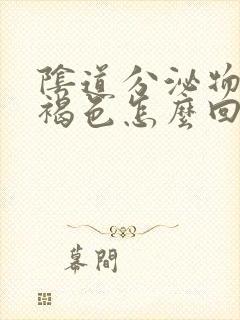 陰道分泌物
褐色怎麼回
幕間